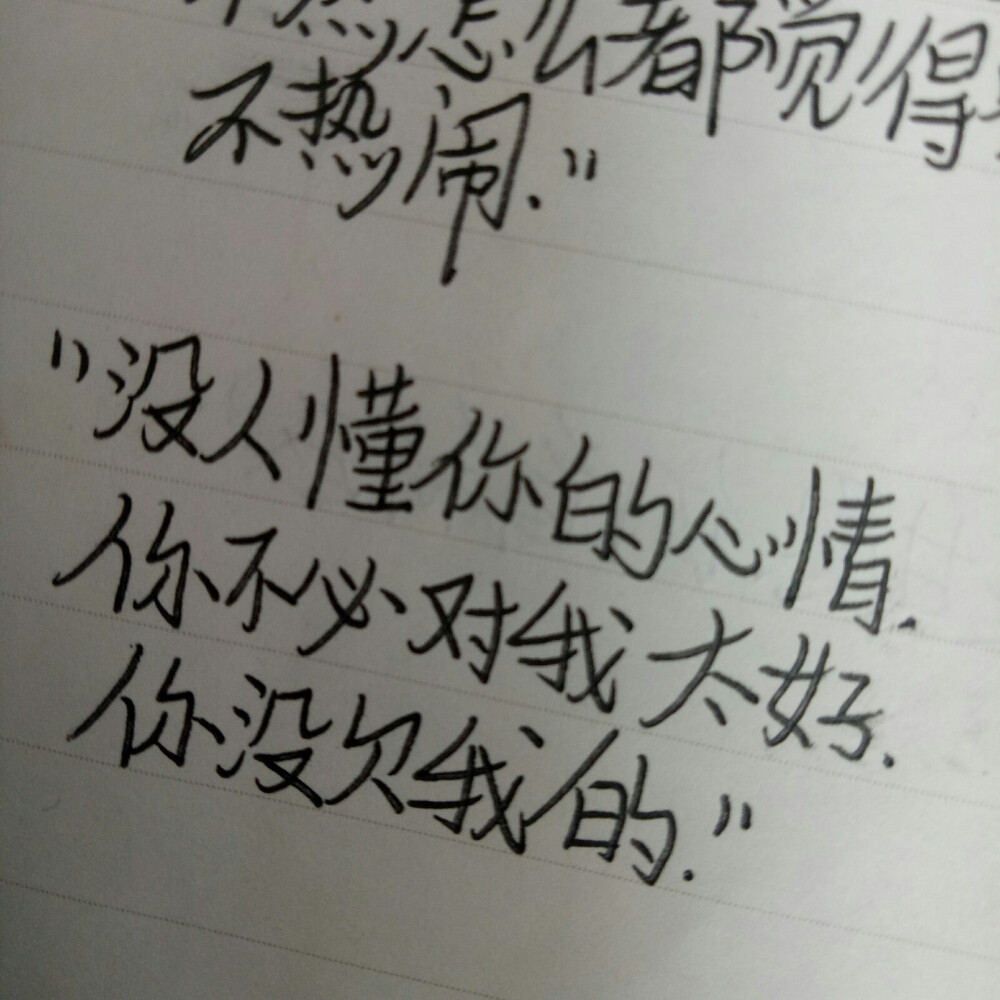 然怎么都觉得
不热闹."
"没人懂你的心情.
你不必对我太好.
你没欠我的."